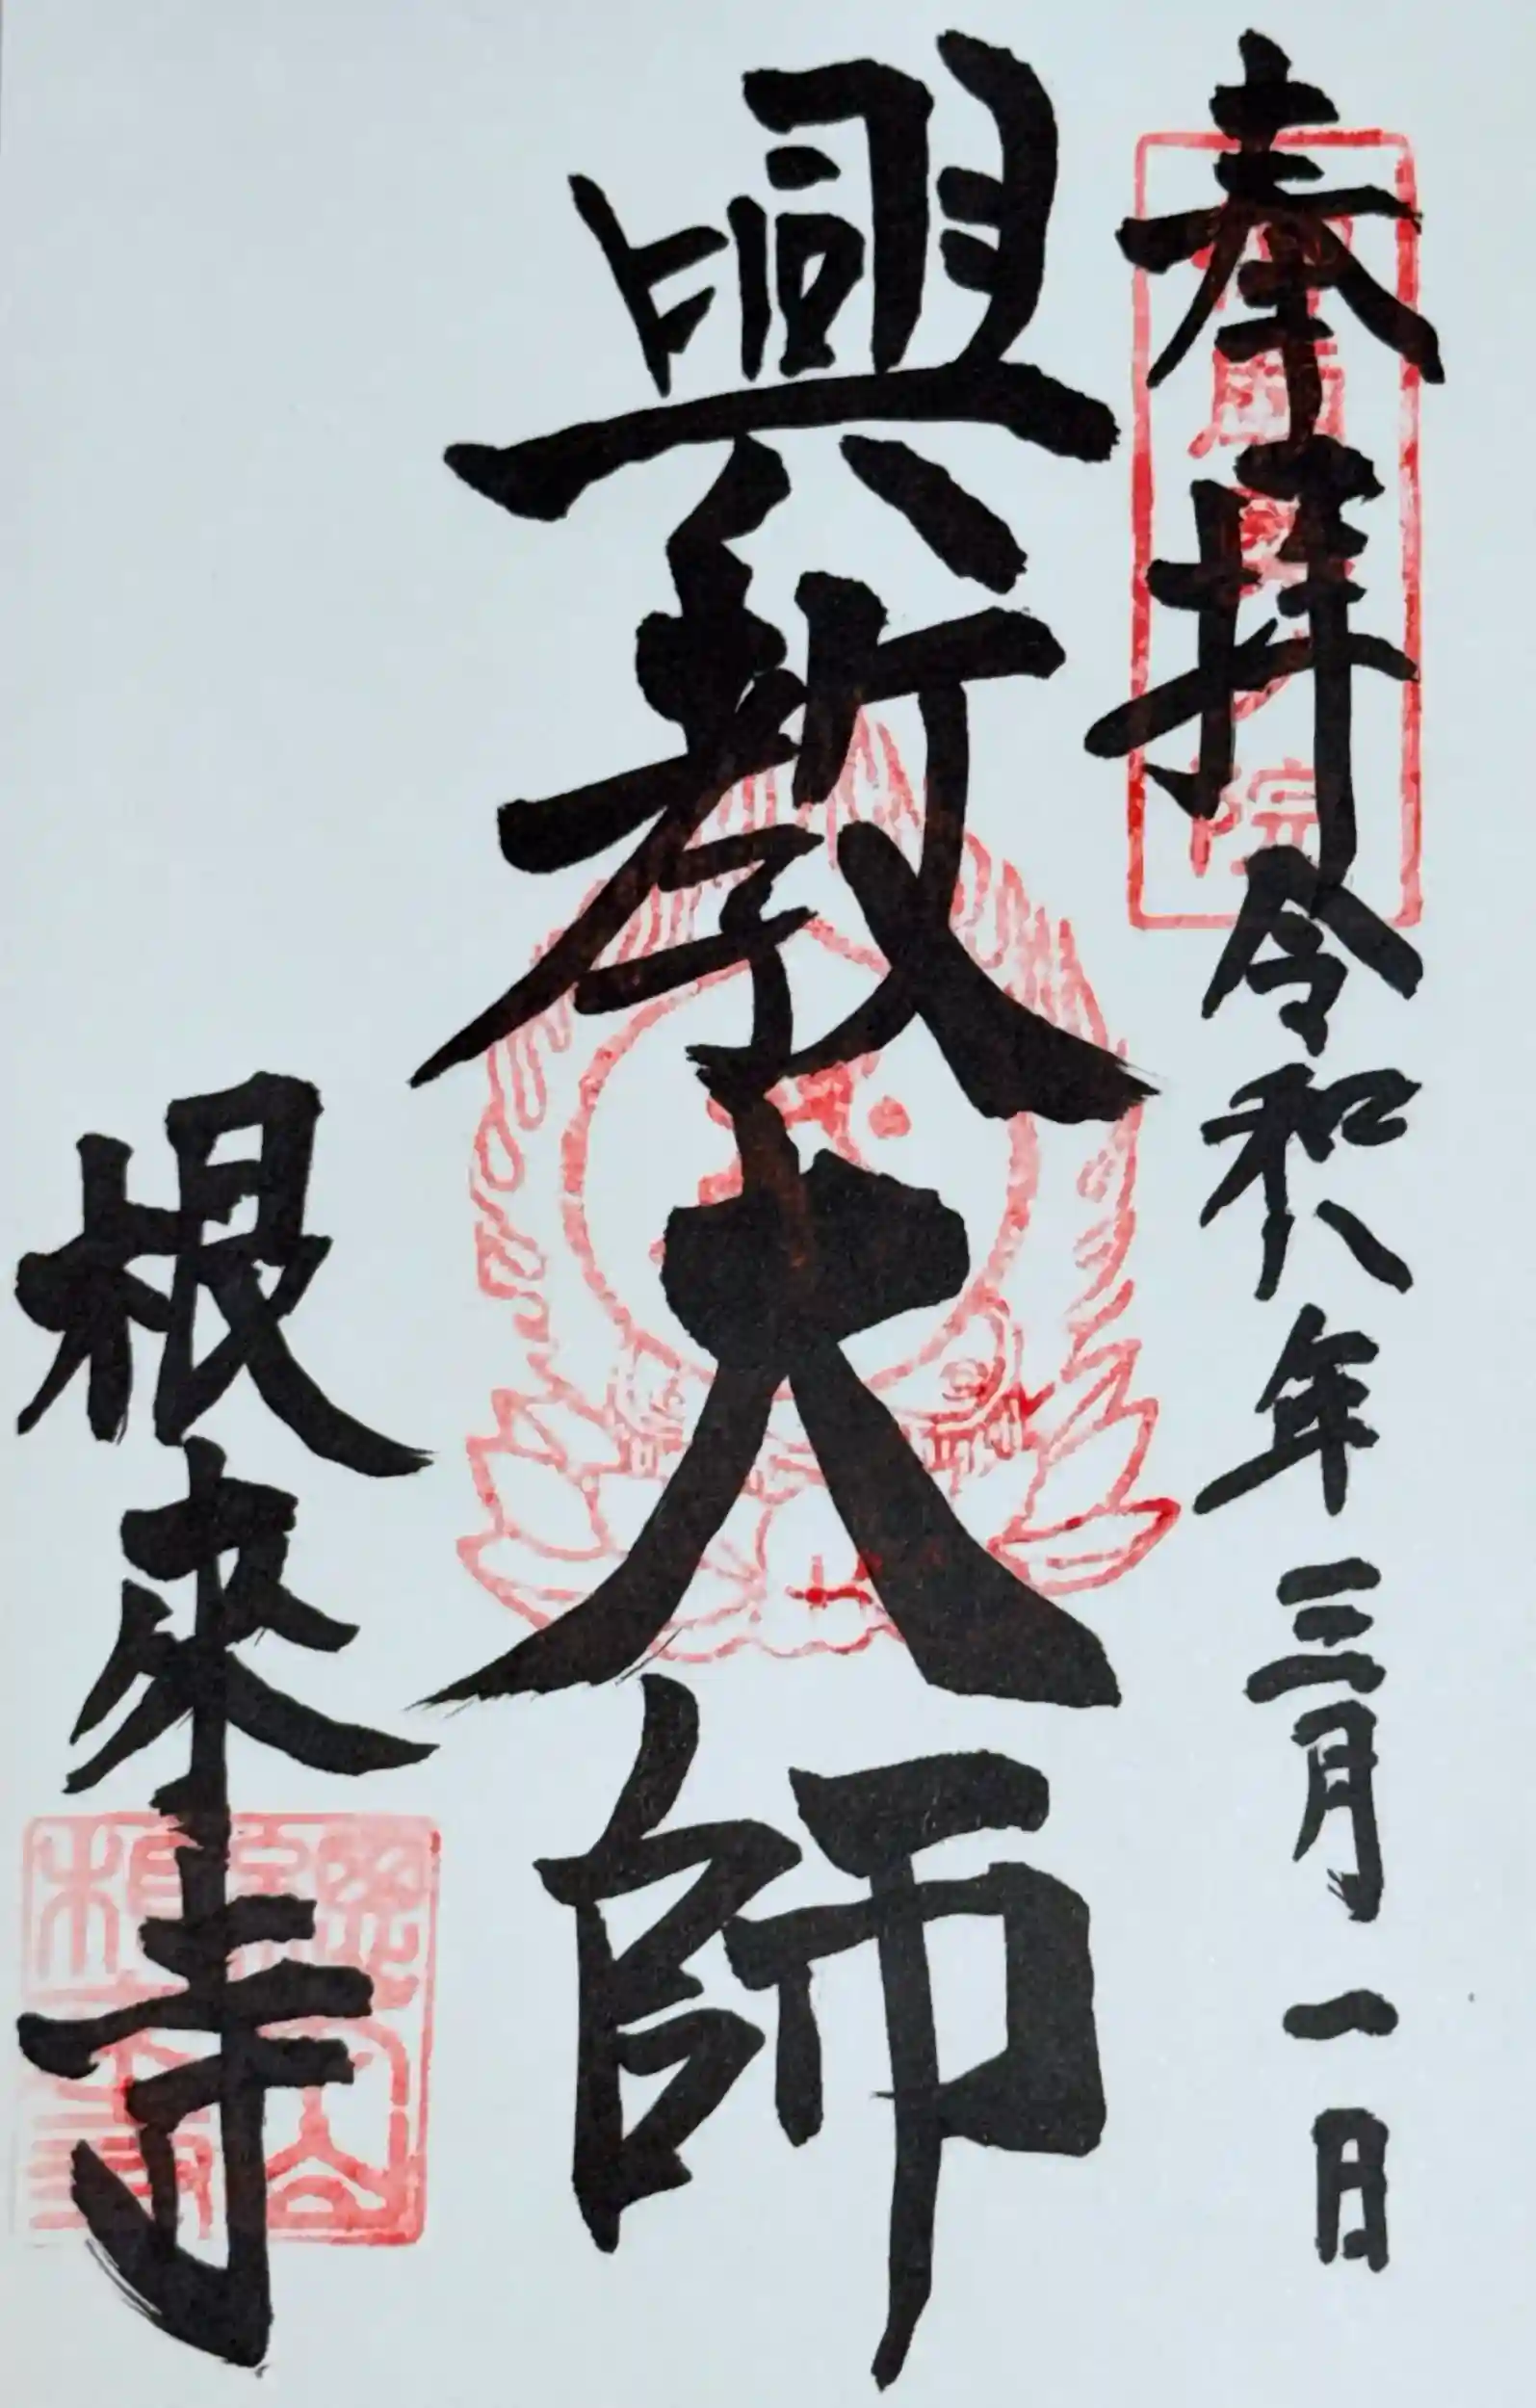 奉拝 令和八年三月一日
興教大師
根来寺